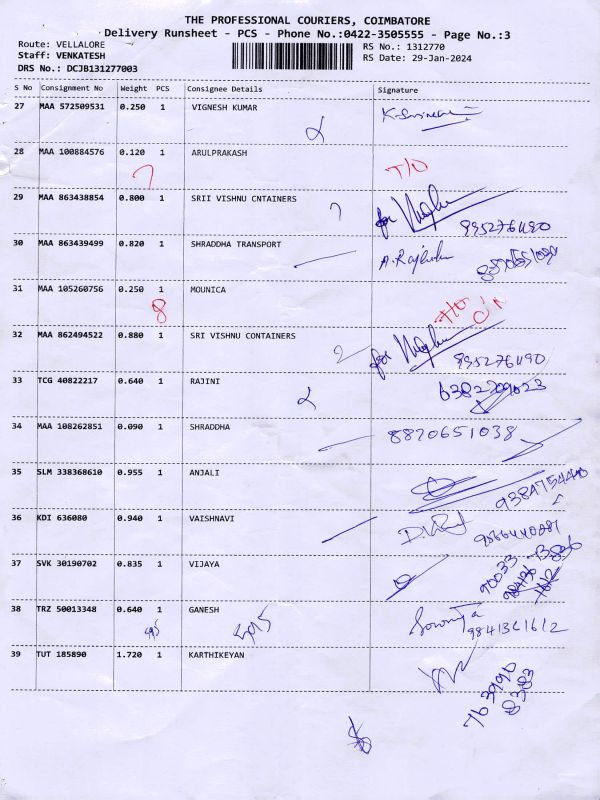 THE PROFESSIONAL COURIERS, COIMBATORE
Delivery Runsheet - PCS - Phone No.:0422-3505555 - Page No.:3
Route: VELLALORE RS No.: 1312770
Staff: VENKATESH RS Date: 29-Jan-2024
DRS No.: DCJB131277003
S No Consignment No Weight PCS Consignee Details Signature
27 MAA 572509531 0.250 1 VIGNESH KUMAR
28 MAA 100884576 0.120 1 ARULPRAKASH
7 T/O
29 MAA 863438854 0.800 1 SRII VISHNU CNTAINERS
for 995276490
30 MAA 863439499 0.820 1 SHRADDHA TRANSPORT
31 MAA 105260756 0.250 1 MOUNICA
8
32 MAA 862494522 0.880 1 SRI VISHNU CONTAINERS
2 for 995276490
33 TCG 40822217 0.640 1 RAJINI
34 MAA 108262851 0.090 1 SHRADDHA 8870651038
35 SLM 338368610 0.955 1 ANJALI
36 KDI 636080 0.940 1 VAISHNAVI
37 SVK 30190702 0.835 1 VIJAYA
38 TRZ 50013348 0.640 1 GANESH
Sowmya 9841361612
39 TUT 185890 1.720 1 KARTHIKEYAN
763990
8383